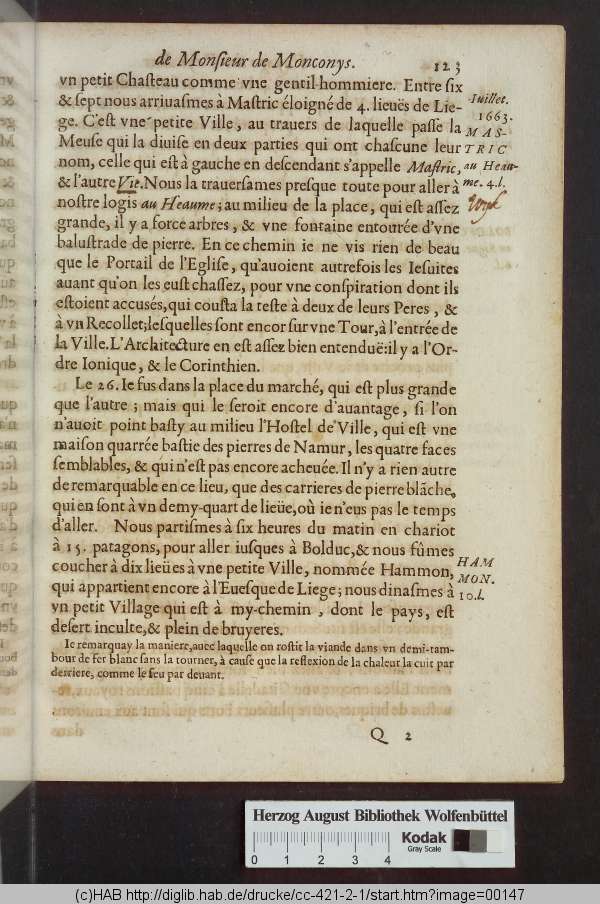 de Monſieur de Monconys. 123
vn petit Chaſteau comme vne gentil-hommiere. Entre ſix
& ſept nous arriuaſmes à Maſtric éloigné de 4. lieuës de Lie-
ge. C'eſt vne petite Ville, au trauers de laquelle paſſe la
Meuſe qui la diuiſe en deux parties qui ont chaſcune leur
nom, celle qui eſt à gauche en deſcendant s'appelle Maſtric,
& l'autre Vic. Nous la trauerſames preſque toute pour aller à
noſtre logis au Heaume; au milieu de la place, qui eſt aſſez
grande, il y a force arbres, & vne fontaine entourée d'vne
baluſtrade de pierre. En ce chemin ie ne vis rien de beau
que le Portail de l'Egliſe, qu'auoient autrefois les Ieſuites
auant qu'on les euſt chaſſez, pour vne conſpiration dont ils
eſtoient accusés, qui couſta la teſte à deux de leurs Peres, &
à vn Recollet; leſquelles ſont encor ſur vne Tour, à l'entrée de
la Ville. L'Architecture en eſt aſſez bien entenduë: il y a l'Or-
dre Ionique, & le Corinthien.
Le 26. Ie fus dans la place du marché, qui eſt plus grande
que l'autre; mais qui le ſeroit encore d'auantage, ſi l'on
n'auoit point baſty au milieu l'Hoſtel de Ville, qui eſt vne
maiſon quarrée baſtie des pierres de Namur, les quatre faces
ſemblables, & qui n'eſt pas encore acheuée. Il n'y a rien autre
de remarquable en ce lieu, que des carrieres de pierre blãche,
qui en ſont à vn demy-quart de lieüe, où ie n'eus pas le temps
d'aller. Nous partiſmes à ſix heures du matin en chariot
à 15. patagons, pour aller iuſques à Bolduc, & nous fûmes
coucher à dix lieües à vne petite Ville, nommée Hammon,
qui appartient encore à l'Eueſque de Liege; nous dinaſmes à
vn petit Village qui eſt à my-chemin, dont le pays, eſt
deſert inculte, & plein de bruyeres.
Ie remarquay la maniere, auec laquelle on roſtit la viande dans vn demi-tam-
bour de fer blanc ſans la tourner, à cauſe que la reflexion de la chaleur la cuit par
derriere, comme le feu par deuant.
Q 2
Iuillet.
1663.
MAS-
TRIC
au Heau-
me. 4. l.
HAM
MON.
10. l.
Herzog August Bibliothek Wolfenbüttel
0 1 2 3 4
Kodak
Gray Scale
(c)HAB http://diglib.hab.de/drucke/cc-421-2-1/start.htm?image=00147